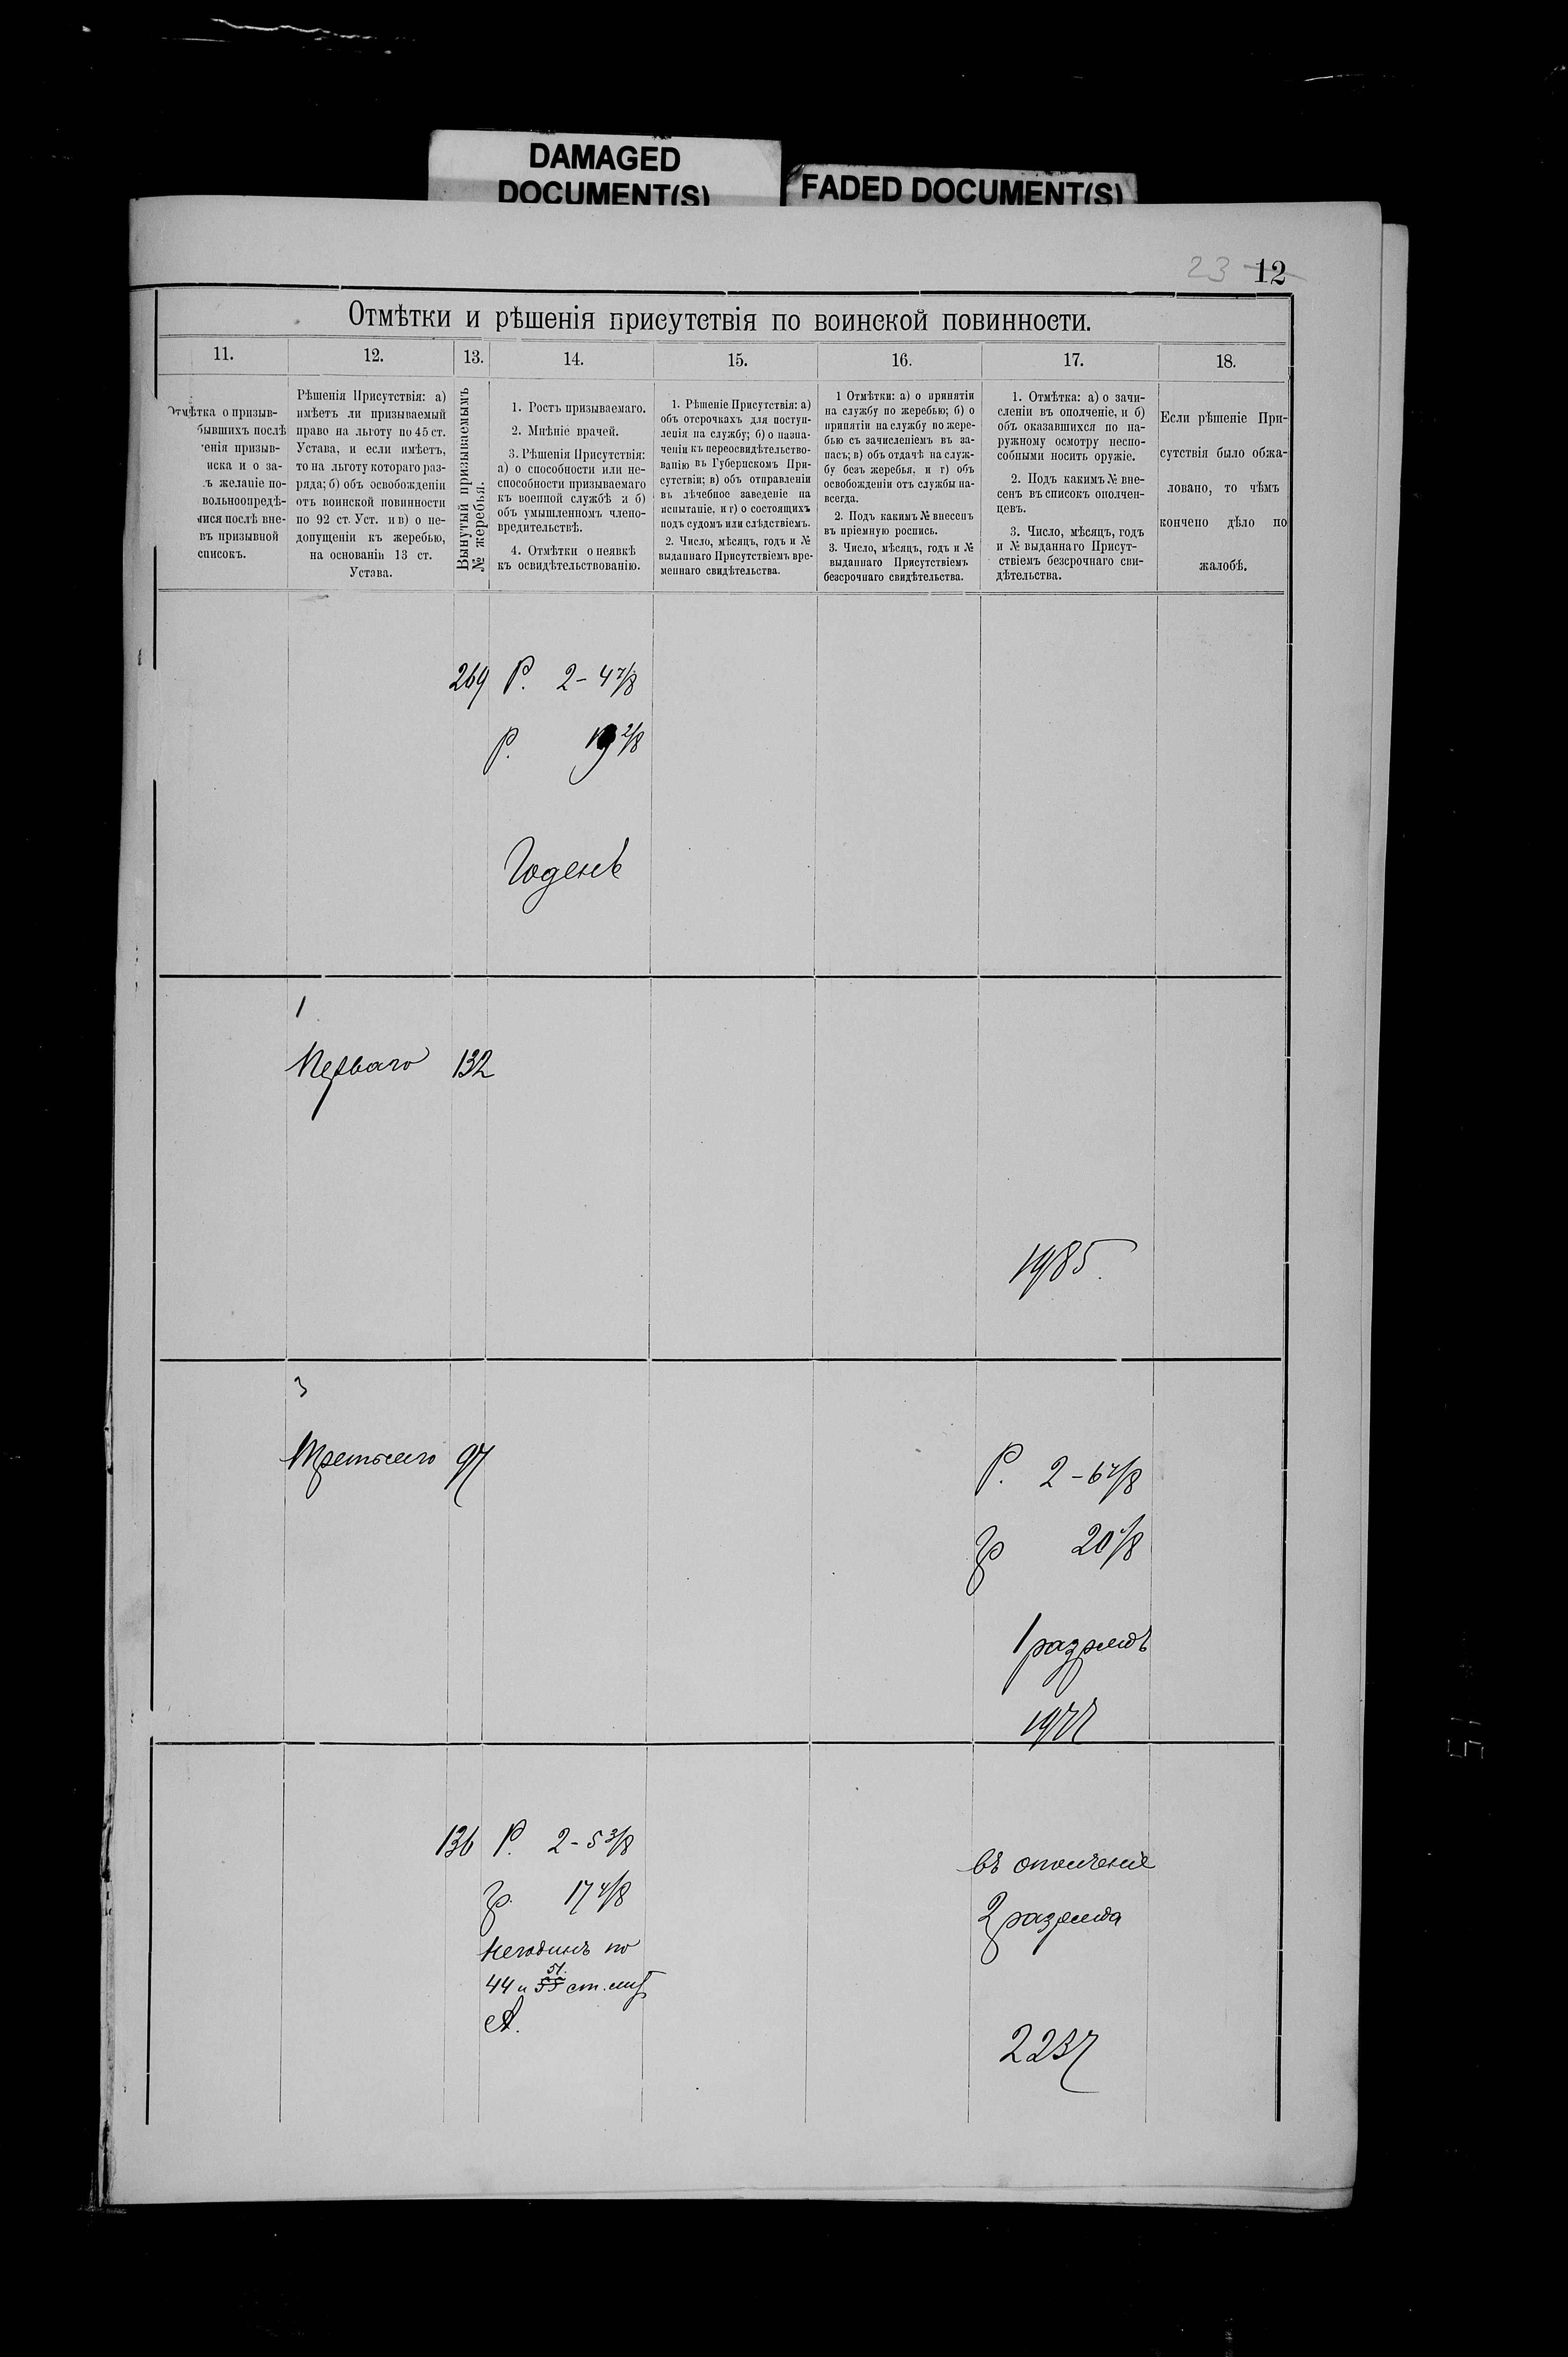 DAMAGED
DOCUMENT(S)
FADED DOCUMENT(S)
23 12
Отмѣтки и рѣшенія присутствія по воинской повинности.
11.
12.
13.
14.
15.
16.
17.
18.
Отмѣтка о призыв-
бывшихъ послѣ
енія призыв-
иска и о за-
ъ желаніе по-
вольноопредѣ-
ися послѣ вне-
въ призывной
списокъ.
Рѣшенія Присутствія: а)
имѣетъ ли призываемый
право на льготу по 45 ст.
Устава, и если имѣетъ,
то на льготу котораго раз-
ряда; б) объ освобожденіи
отъ воинской повинности
по 92 ст. Уст. и в) о не-
допущеніи къ жеребью,
на основаніи 13 ст.
Устава.
Вынутый призываемымъ
№ жеребья.
1. Ростъ призываемаго.
2. Мнѣніе врачей.
3. Рѣшенія Присутствія:
а) о способности или не-
способности призываемаго
къ военной службѣ и б)
объ умышленномъ члено-
вредительствѣ.
4. Отмѣтки о неявкѣ
къ освидѣтельствованію.
1. Рѣшеніе Присутствія: а)
объ отсрочкахъ для поступ-
ленія на службу; б) о назна-
ченіи къ переосвидѣтельство-
ванію въ Губернскомъ При-
сутствіи; в) объ отправленіи
въ лѣчебное заведеніе на
испытаніе, и г) о состоящихъ
подъ судомъ или слѣдствіемъ.
2. Число, мѣсяцъ, годъ и №
выданнаго Присутствіемъ вре-
меннаго свидѣтельства.
1 Отмѣтки: а) о принятіи
на службу по жеребью; б) о
принятіи на службу по жере-
бью съ зачисленіемъ въ за-
пасъ; в) объ отдачѣ на служ-
бу безъ жеребья, и г) объ
освобожденіи отъ службы на-
всегда.
2. Подъ какимъ № внесенъ
въ пріемную роспись.
3. Число, мѣсяцъ, годъ и №
выданнаго Присутствіемъ
безсрочнаго свидѣтельства.
1. Отмѣтка: а) о зачи-
сленіи въ ополченіе, и б)
объ оказавшихся по на-
ружному осмотру неспо-
собными носить оружіе.
2. Подъ какимъ № вне-
сенъ въ списокъ ополчен-
цевъ.
3. Число, мѣсяцъ, годъ
и № выданнаго Присут-
ствіемъ безсрочнаго сви-
дѣтельства.
Если рѣшеніе При-
сутствія было обжа-
ловано, то чѣмъ
кончено дѣло по
жалобѣ.
269 Р. 2-4 7/8
р. 19 2/8
Годенъ
1
Перваго 132
1985.
3
Третьяго 97
Р. 2-6 4/8
гр 20 /8
1 разрядъ
1977
136 Р. 2-5 3/8
гр. 17 4/8
Негоденъ по
51.
44 и 55 ст. лит
А.
въ ополченіе
2 разряда
2237